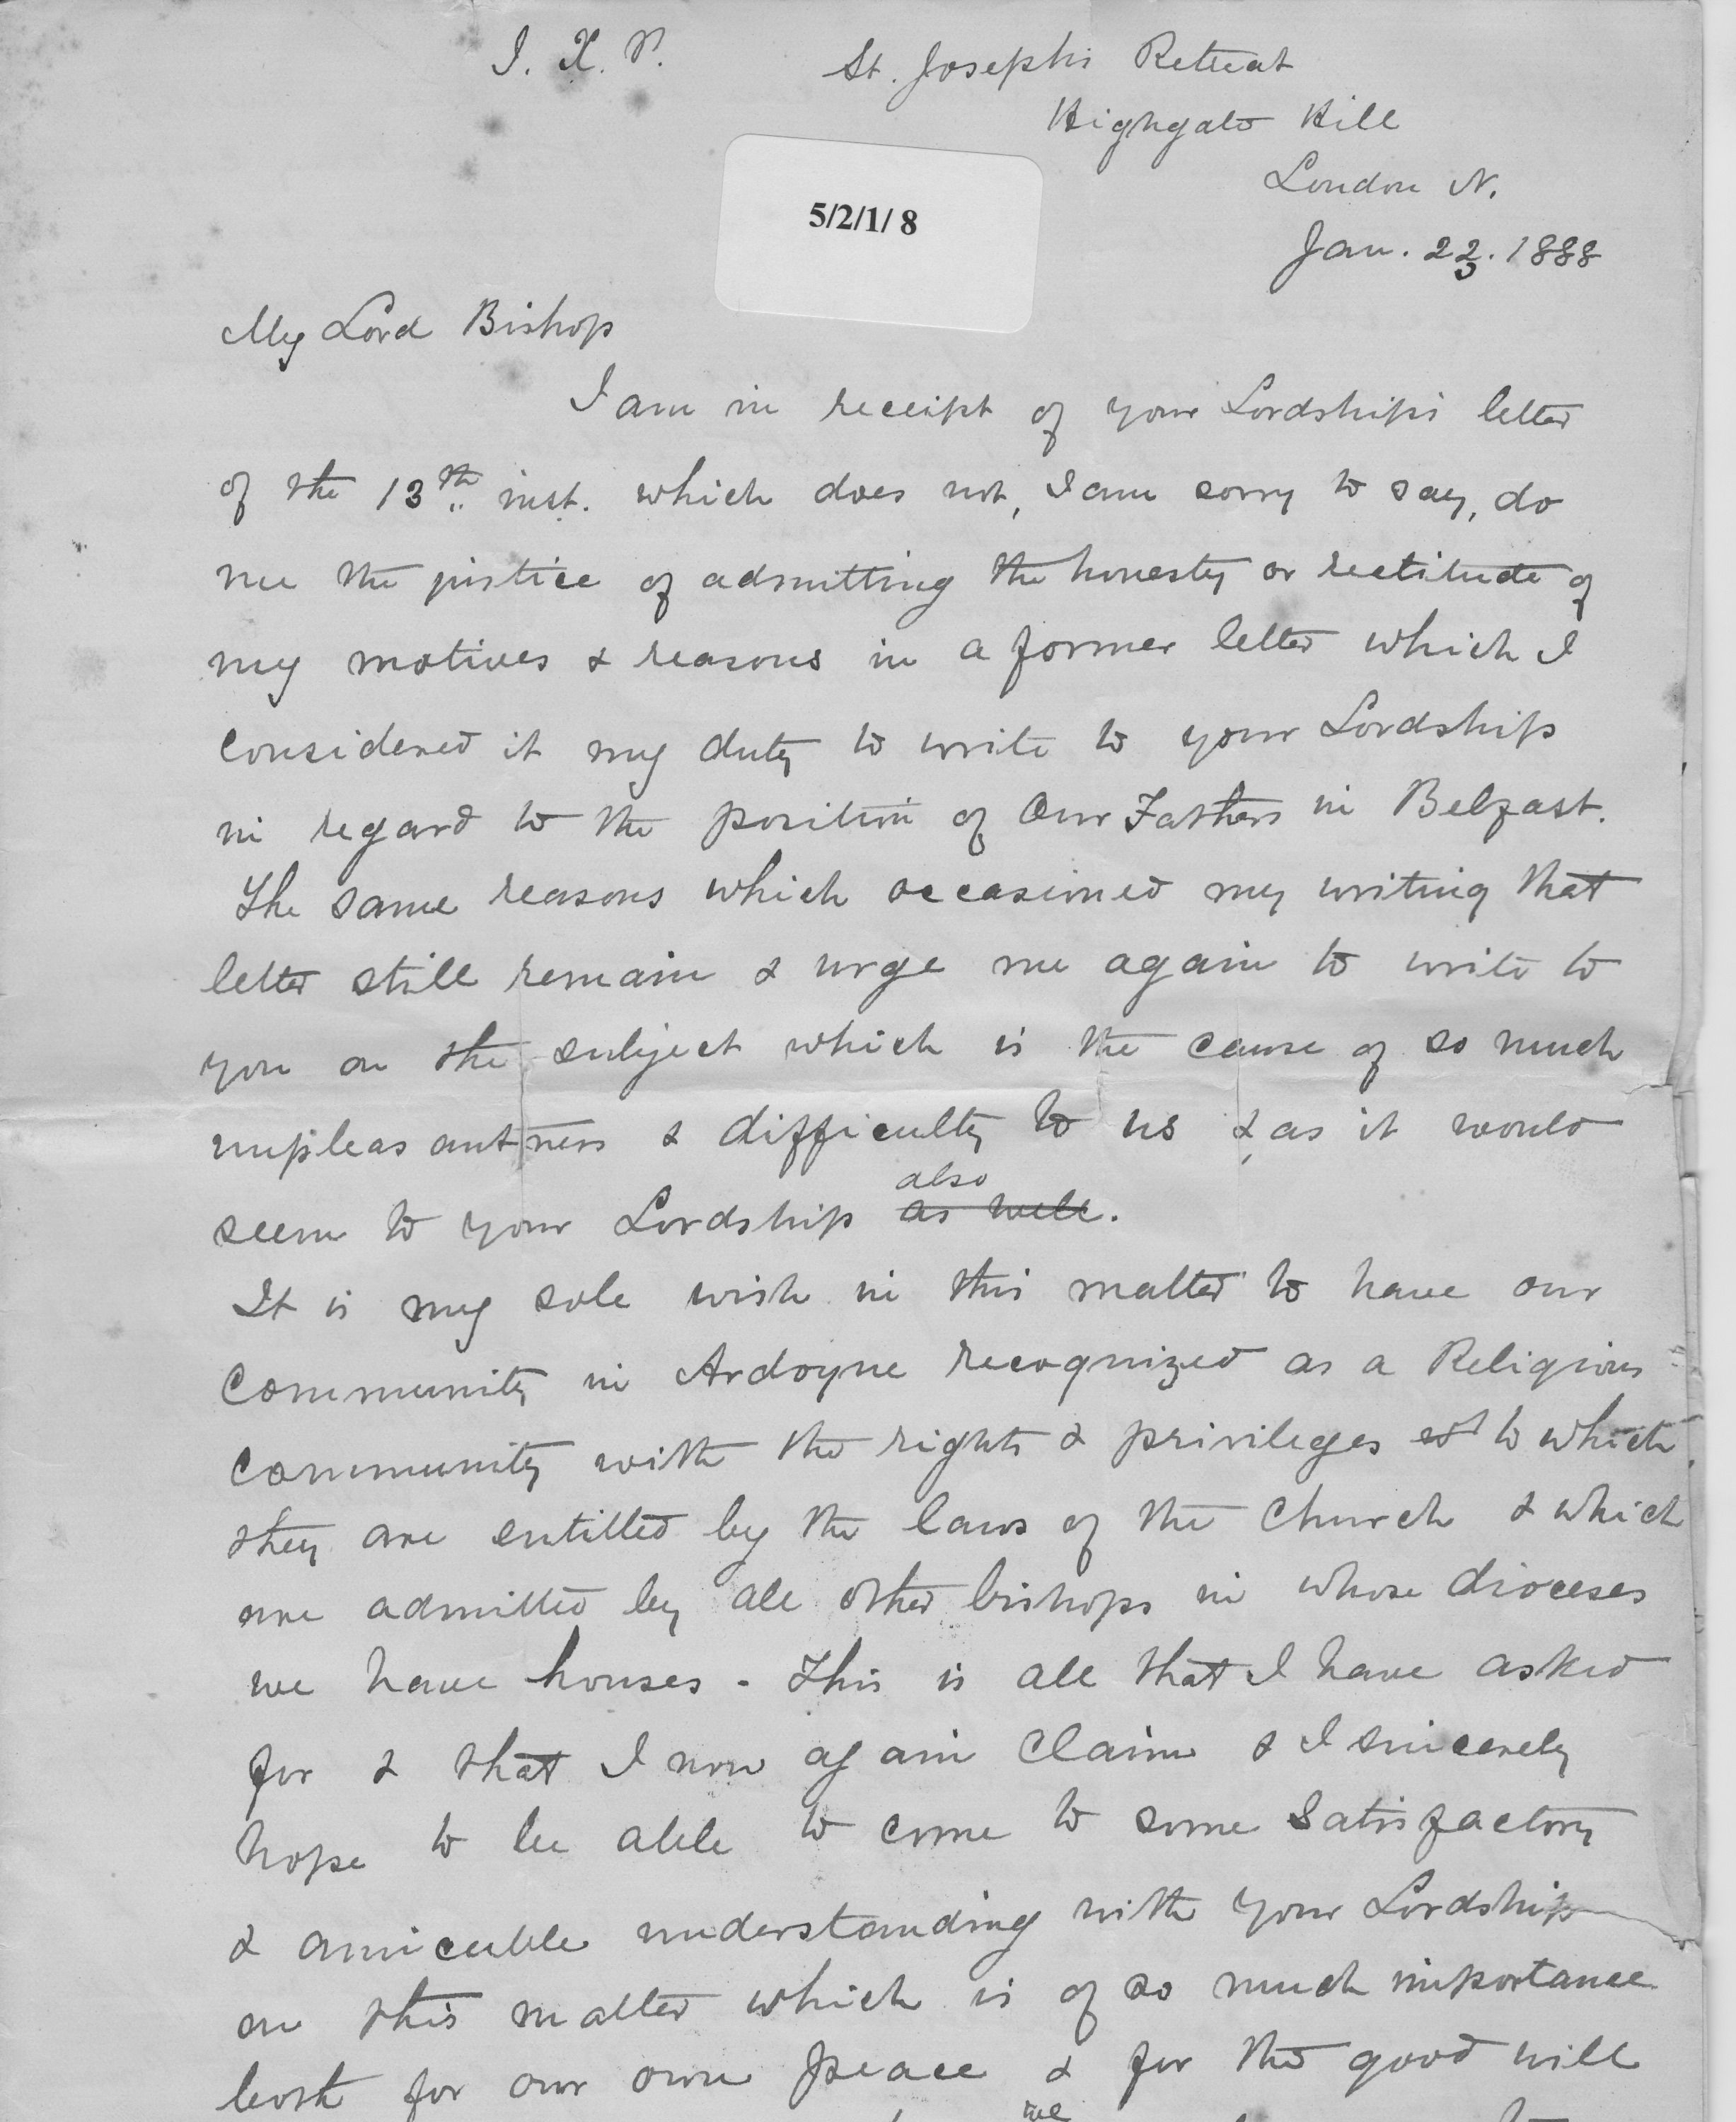 I. X. P.
St. Joseph's Retreat
Highgate Hill
London N.
Jan. 23. 1888
5/2/1/8
My Lord Bishop
I am in receipt of your Lordship's letter
of the 13th inst. which does not, I am sorry to say, do
me the justice of admitting the honesty or rectitude of
my motives & reasons in a former letter which I
considered it my duty to write to your Lordship
in regard to the position of Our Fathers in Belfast.
The same reasons which occasioned my writing that
letter still remain & urge me again to write to
you on the subject which is the cause of so much
unpleasantness & difficulty to us &, as it would
seem to your Lordship also as well.
It is my sole wish in this matter to have our
Community in Ardoyne recognized as a Religious
Community with the rights & privileges to which
they are entitled by the laws of the Church & which
are admitted by all other bishops in whose dioceses
we have houses. This is all that I have asked
for & that I now again claim & I sincerely
hope to be able to come to some satisfactory
& amicable understanding with your Lordship
on this matter which is of so much importance
both for our own peace & for the good will
we